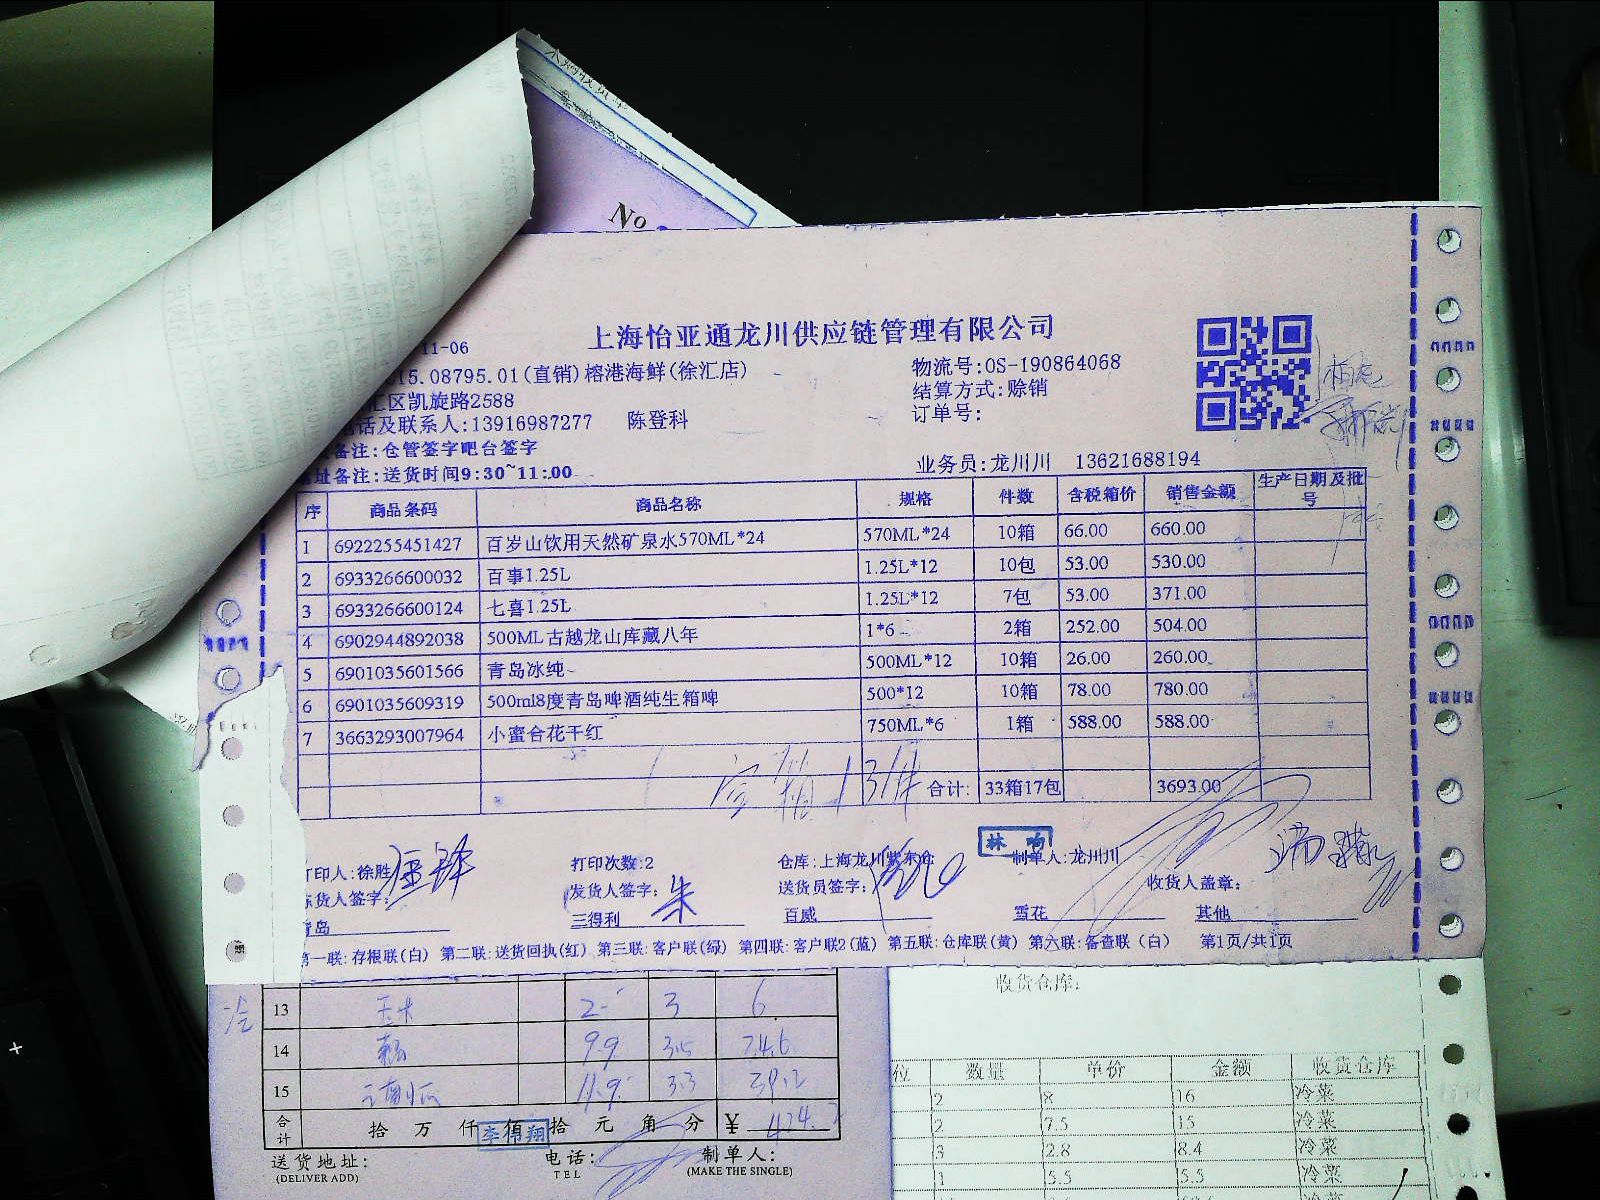 No
上海怡亚通龙川供应链管理有限公司
11-06
15.08795.01(直销)榕港海鲜(徐汇店)
物流号:OS-190864068
汇区凯旋路2588
结算方式:赊销
电话及联系人:13916987277 陈登科
订单号:
备注:仓管签字吧台签字
址备注:送货时间9:30~11:00
业务员:龙川川 13621688194
序 商品条码 商品名称 规格 件数 含税箱价 销售金额 生产日期及批号
1 6922255451427 百岁山饮用天然矿泉水570ML*24 570ML*24 10箱 66.00 660.00
2 6933266600032 百事1.25L 1.25L*12 10包 53.00 530.00
3 6933266600124 七喜1.25L 1.25L*12 7包 53.00 371.00
4 6902944892038 500ML古越龙山库藏八年 1*6 2箱 252.00 504.00
5 6901035601566 青岛冰纯 500ML*12 10箱 26.00 260.00
6 6901035609319 500ml8度青岛啤酒纯生箱啤 500*12 10箱 78.00 780.00
7 3663293007964 小蜜合花干红 750ML*6 1箱 588.00 588.00
合计: 33箱17包 3693.00
林 响
打印人:徐胜 打印次数:2 仓库:上海龙川紫东仓 制单人:龙川川
货人签字: 发货人签字: 朱 送货员签字: 收货人盖章:
青岛 三得利 百威 雪花 其他
第一联:存根联(白) 第二联:送货回执(红) 第三联:客户联(绿) 第四联:客户联2(蓝) 第五联:仓库联(黄) 第六联:备查联(白) 第1页/共1页
13 玉米 2 3 6
14 9.9 3.5
15 11.9 3.3 39.2
合计 拾 万 仟 佰 拾 元 角 分 ¥
李伟翔
送货地址: 电话: 制单人:
(DELIVER ADD) TEL (MAKE THE SINGLE)
收货仓库:
位 数量 单价 金额 收货仓库
2 8 16 冷菜
2 7.5 15 冷菜
3 2.8 8.4 冷菜
1 5.5 5.5 冷菜